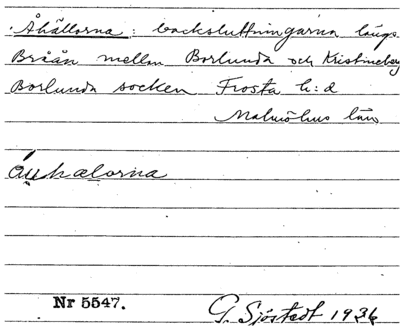 Åhällorna: backsluttningarna längs
Bråån mellan Borlunda och Kristineberg
Borlunda socken Frosta h:d
Malmöhus län
Nr 5547. G. Sjöstedt 1936